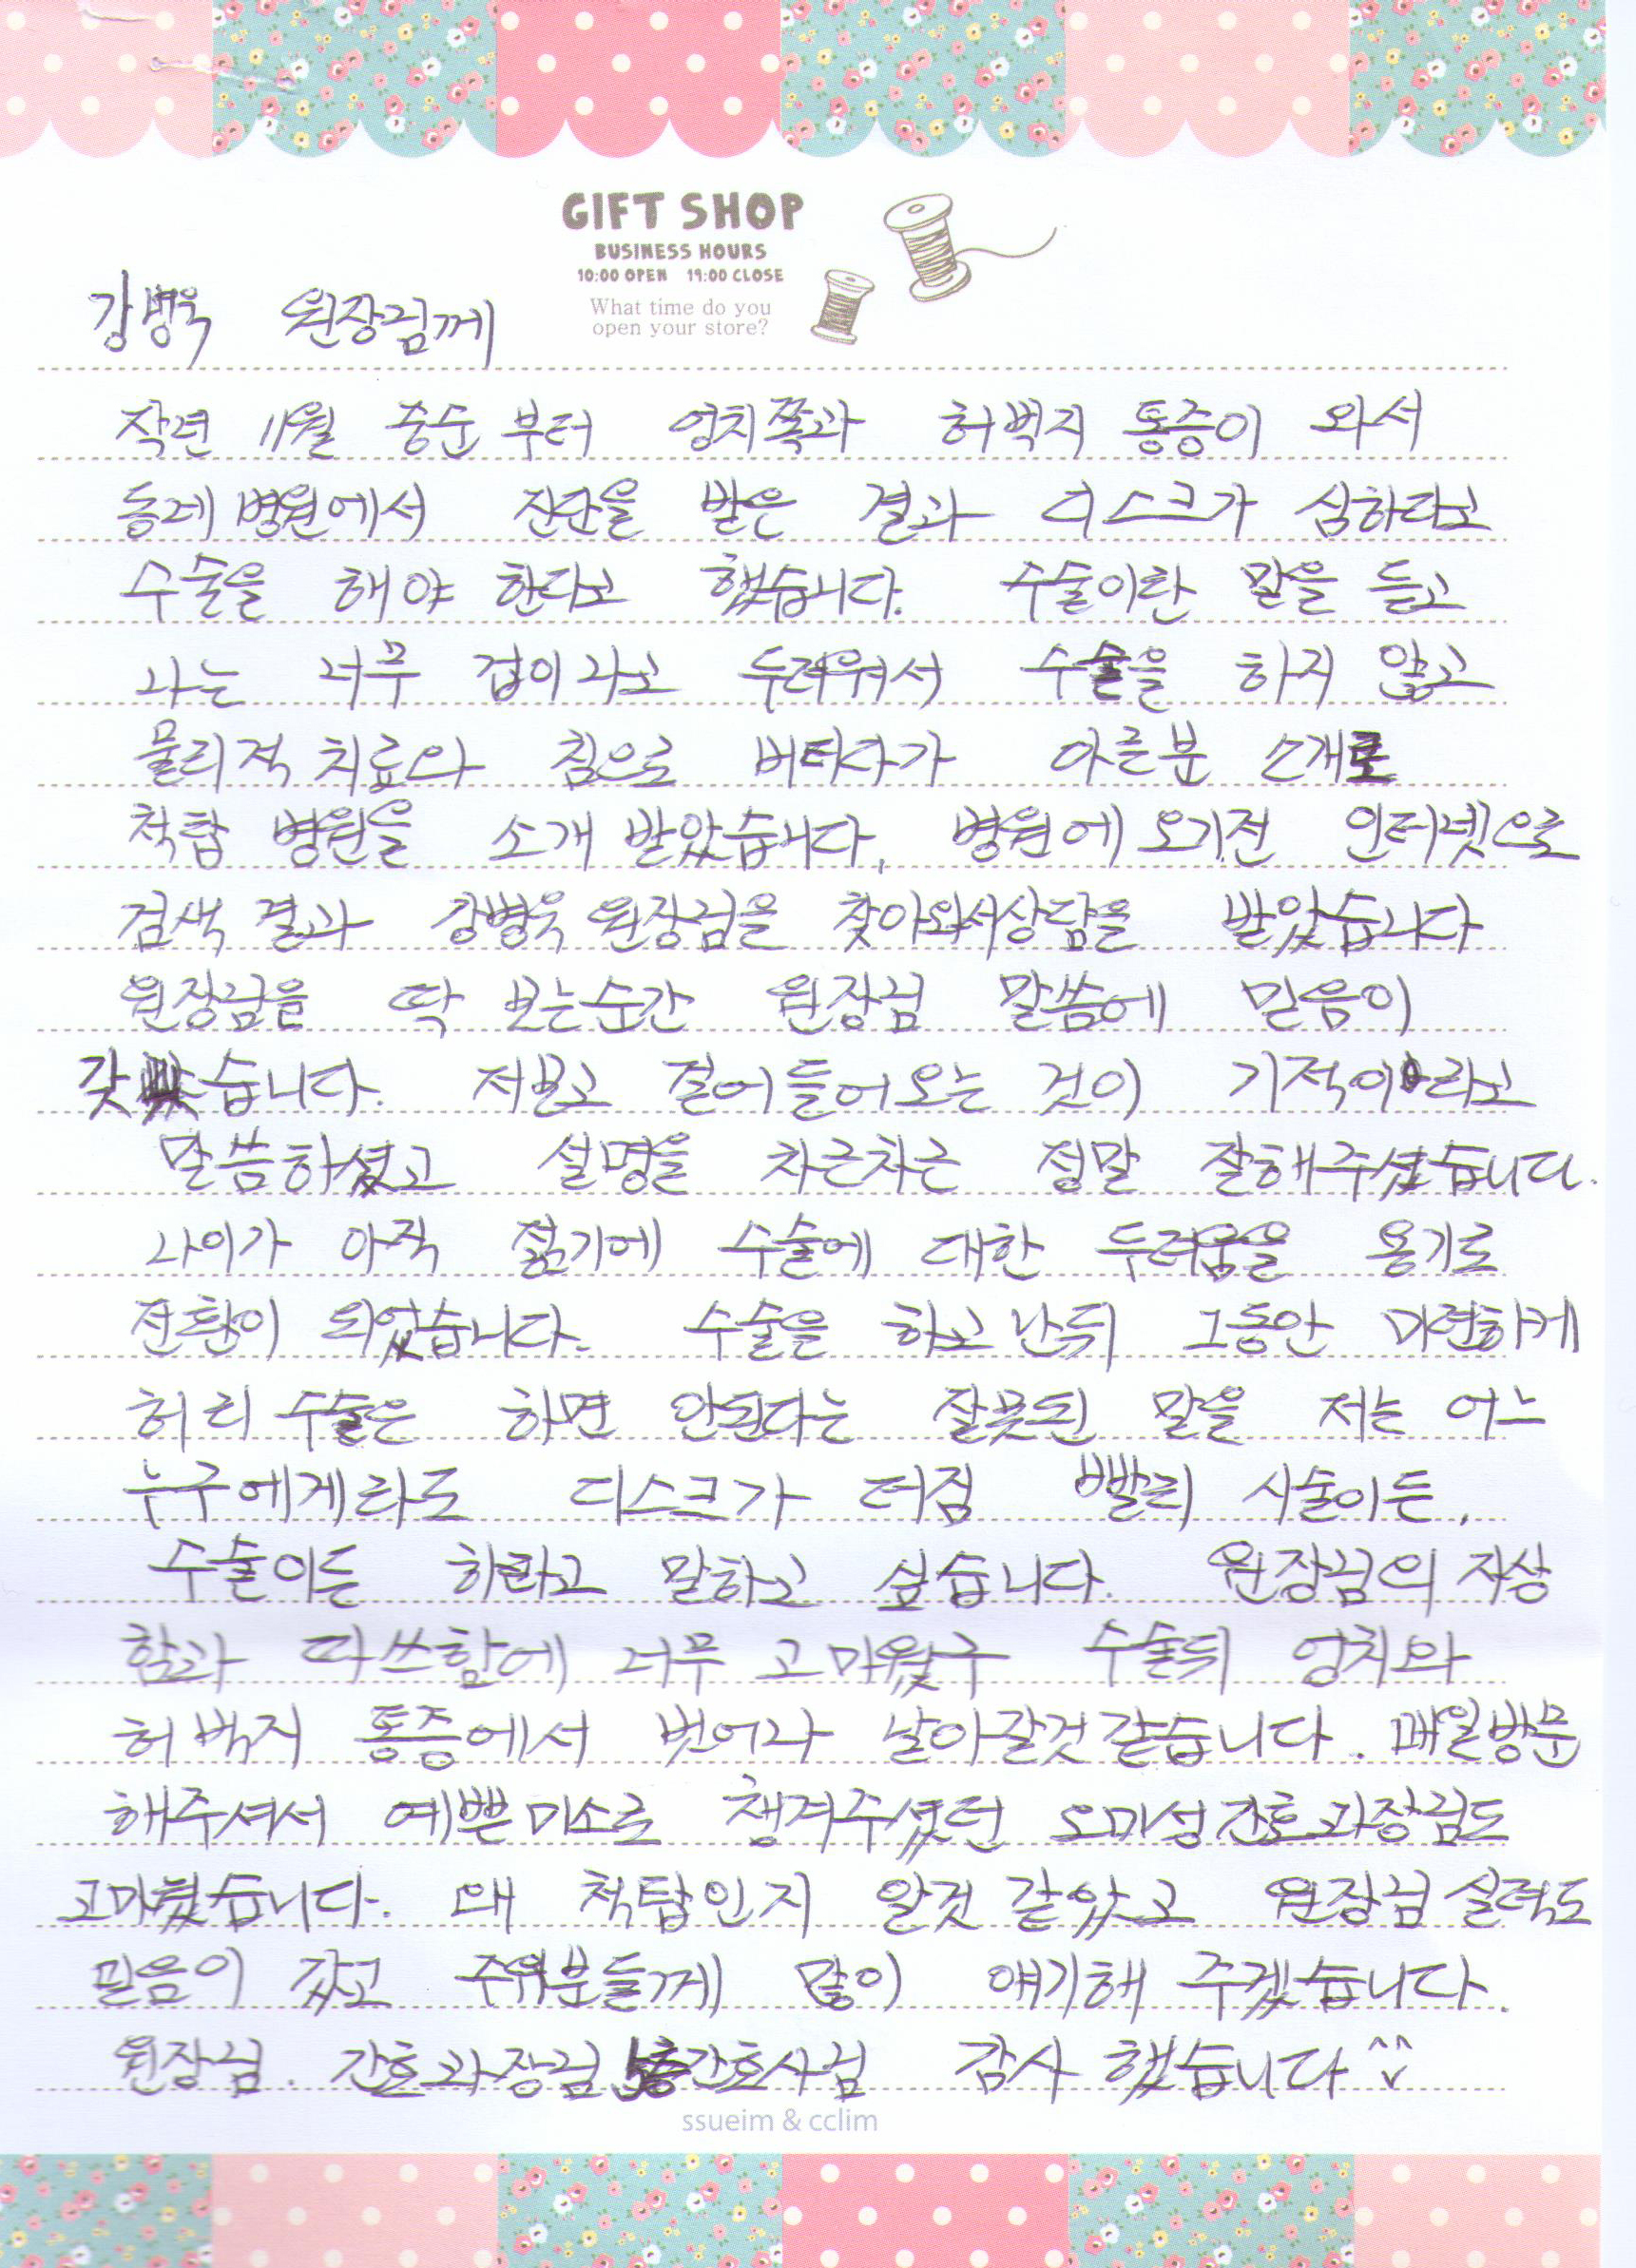 GIFT SHOP
BUSINESS HOURS
10:00 OPEN 19:00 CLOSE
What time do you
open your store?
강병욱 원장님께
작년 11월 중순 부터 엉치쪽과 허벅지 통증이 와서
동네 병원에서 진단을 받은 결과 디스크가 심하다고
수술을 해야 한다고 했습니다. 수술이란 말을 듣고
나는 너무 겁이 나고 두려워서 수술을 하지 않고
물리적 치료와 침으로 버티다가 아는분 소개로
척탑 병원을 소개 받았습니다. 병원에 오기전 인터넷으로
검색 결과 강병욱 원장님을 찾아와서상담을 받았습니다
원장님을 딱 보는순간 원장님 말씀에 믿음이
갔습니다. 저보고 걸어들어오는 것이 기적이라고
말씀하셨고 설명을 차근차근 정말 잘해주셨습니다.
나이가 아직 젊기에 수술에 대한 두려움을 용기로
전환이 되었습니다. 수술을 하고 난뒤 그동안 미련하게
허리 수술은 하면 안된다는 잘못된 말을 저는 어느
누구에게라도 디스크가 터짐 빨리 시술이든,
수술이든 하라고 말하고 싶습니다. 원장님의 자상
함과 따쓰함에 너무 고마웠구 수술뒤 엉치와
허벅지 통증에서 벗어나 날아갈것같습니다. 매일방문
해주셔서 예쁜미소로 챙겨주셨던 오미성간호과장님도
고마웠습니다. 왜 척탑인지 알것 같았고 원장님 실력도
믿음이 갔고 주위분들께 많이 얘기해 주겠습니다.
원장님. 간호과장님 5층간호사님 감사 했습니다 ^^
ssueim & cclim